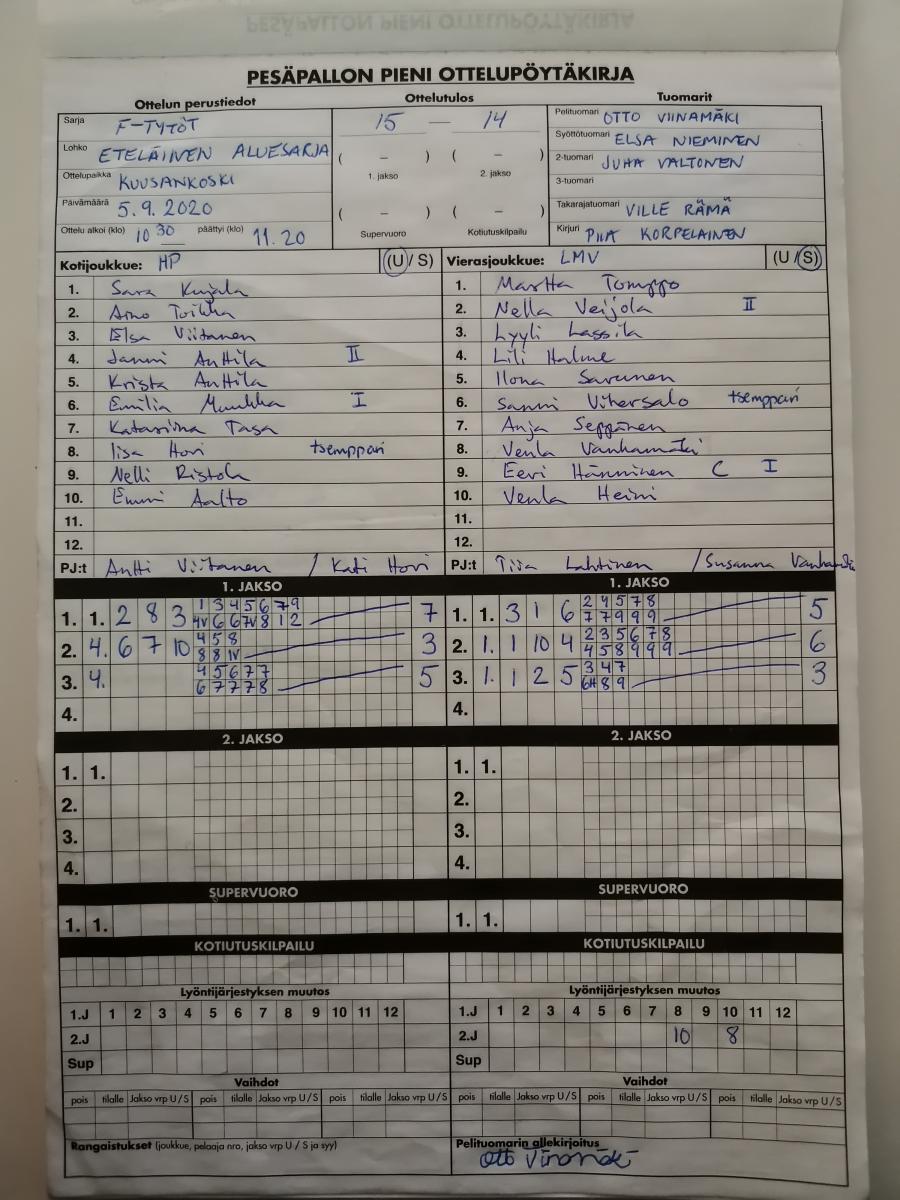 PESÄPALLON PIENI OTTELUPÖYTÄKIRJA
Ottelun perustiedot
Sarja F-TYTÖT
Lohko ETELÄINEN ALUESARJA
Ottelupaikka KUUSANKOSKI
Päivämäärä 5.9.2020
Ottelu alkoi (klo) 10 30 päättyi (klo) 11.20
Ottelutulos
15 — 14
( – ) ( – )
1. jakso 2. jakso
( – ) ( – )
Supervuoro Kotiutuskilpailu
Tuomarit
Pelituomari OTTO VIINAMÄKI
Syöttötuomari ELSA NIEMINEN
2-tuomari JUHA VALTONEN
3-tuomari
Takarajatuomari VILLE RÄMÄ
Kirjuri PIIA KORPELAINEN
Kotijoukkue: HP (U / S)
1. Sara Kujala
2. Aino Toikka
3. Elsa Viitanen
4. Janni Anttila II
5. Krista Anttila
6. Emilia Muukka I
7. Katariina Tasa
8. Iisa Hovi tsemppari
9. Nelli Ristola
10. Emmi Aalto
11.
12.
PJ:t Antti Viitanen / Kati Hovi
Vierasjoukkue: LMV (U / S)
1. Martta Tomppo
2. Nella Veijola II
3. Lyyli Lassila
4. Lili Halme
5. Ilona Savunen
6. Sanni Vihersalo tsemppari
7. Anja Seppänen
8. Venla Vanhamäki
9. Eevi Hänninen C I
10. Venla Heini
11.
12.
PJ:t Tiia Lahtinen / Susanna
1. JAKSO
1. 1. 2 8 3 1 3 4 5 6 7 9 7
4V 6 6 7V 8 1 2
2. 4. 6 7 10 4 5 8 3
8 8 1V
3. 4. 4 5 6 7 7 5
6 7 7 7 8
4.
1. JAKSO
1. 1. 3 1 6 2 4 5 7 8 5
7 7 9 9 9
2. 1. 1 10 4 2 3 5 6 7 8 6
4 5 8 9 9 9
3. 1. 1 2 5 3 4 7 3
6H 8 9
4.
2. JAKSO
1. 1.
2.
3.
4.
2. JAKSO
1. 1.
2.
3.
4.
SUPERVUORO
1. 1.
SUPERVUORO
1. 1.
KOTIUTUSKILPAILU
KOTIUTUSKILPAILU
Lyöntijärjestyksen muutos
1.J 1 2 3 4 5 6 7 8 9 10 11 12
2.J
Sup
Lyöntijärjestyksen muutos
1.J 1 2 3 4 5 6 7 8 9 10 11 12
2.J 10 8
Sup
Vaihdot
pois tilalle Jakso vrp U / S pois tilalle Jakso vrp U / S pois tilalle Jakso vrp U / S
Vaihdot
pois tilalle Jakso vrp U / S pois tilalle Jakso vrp U / S pois tilalle Jakso vrp U / S
Rangaistukset (joukkue, pelaaja nro, jakso vrp U / S ja syy)
Pelituomarin allekirjoitus
Otto Viinamäki